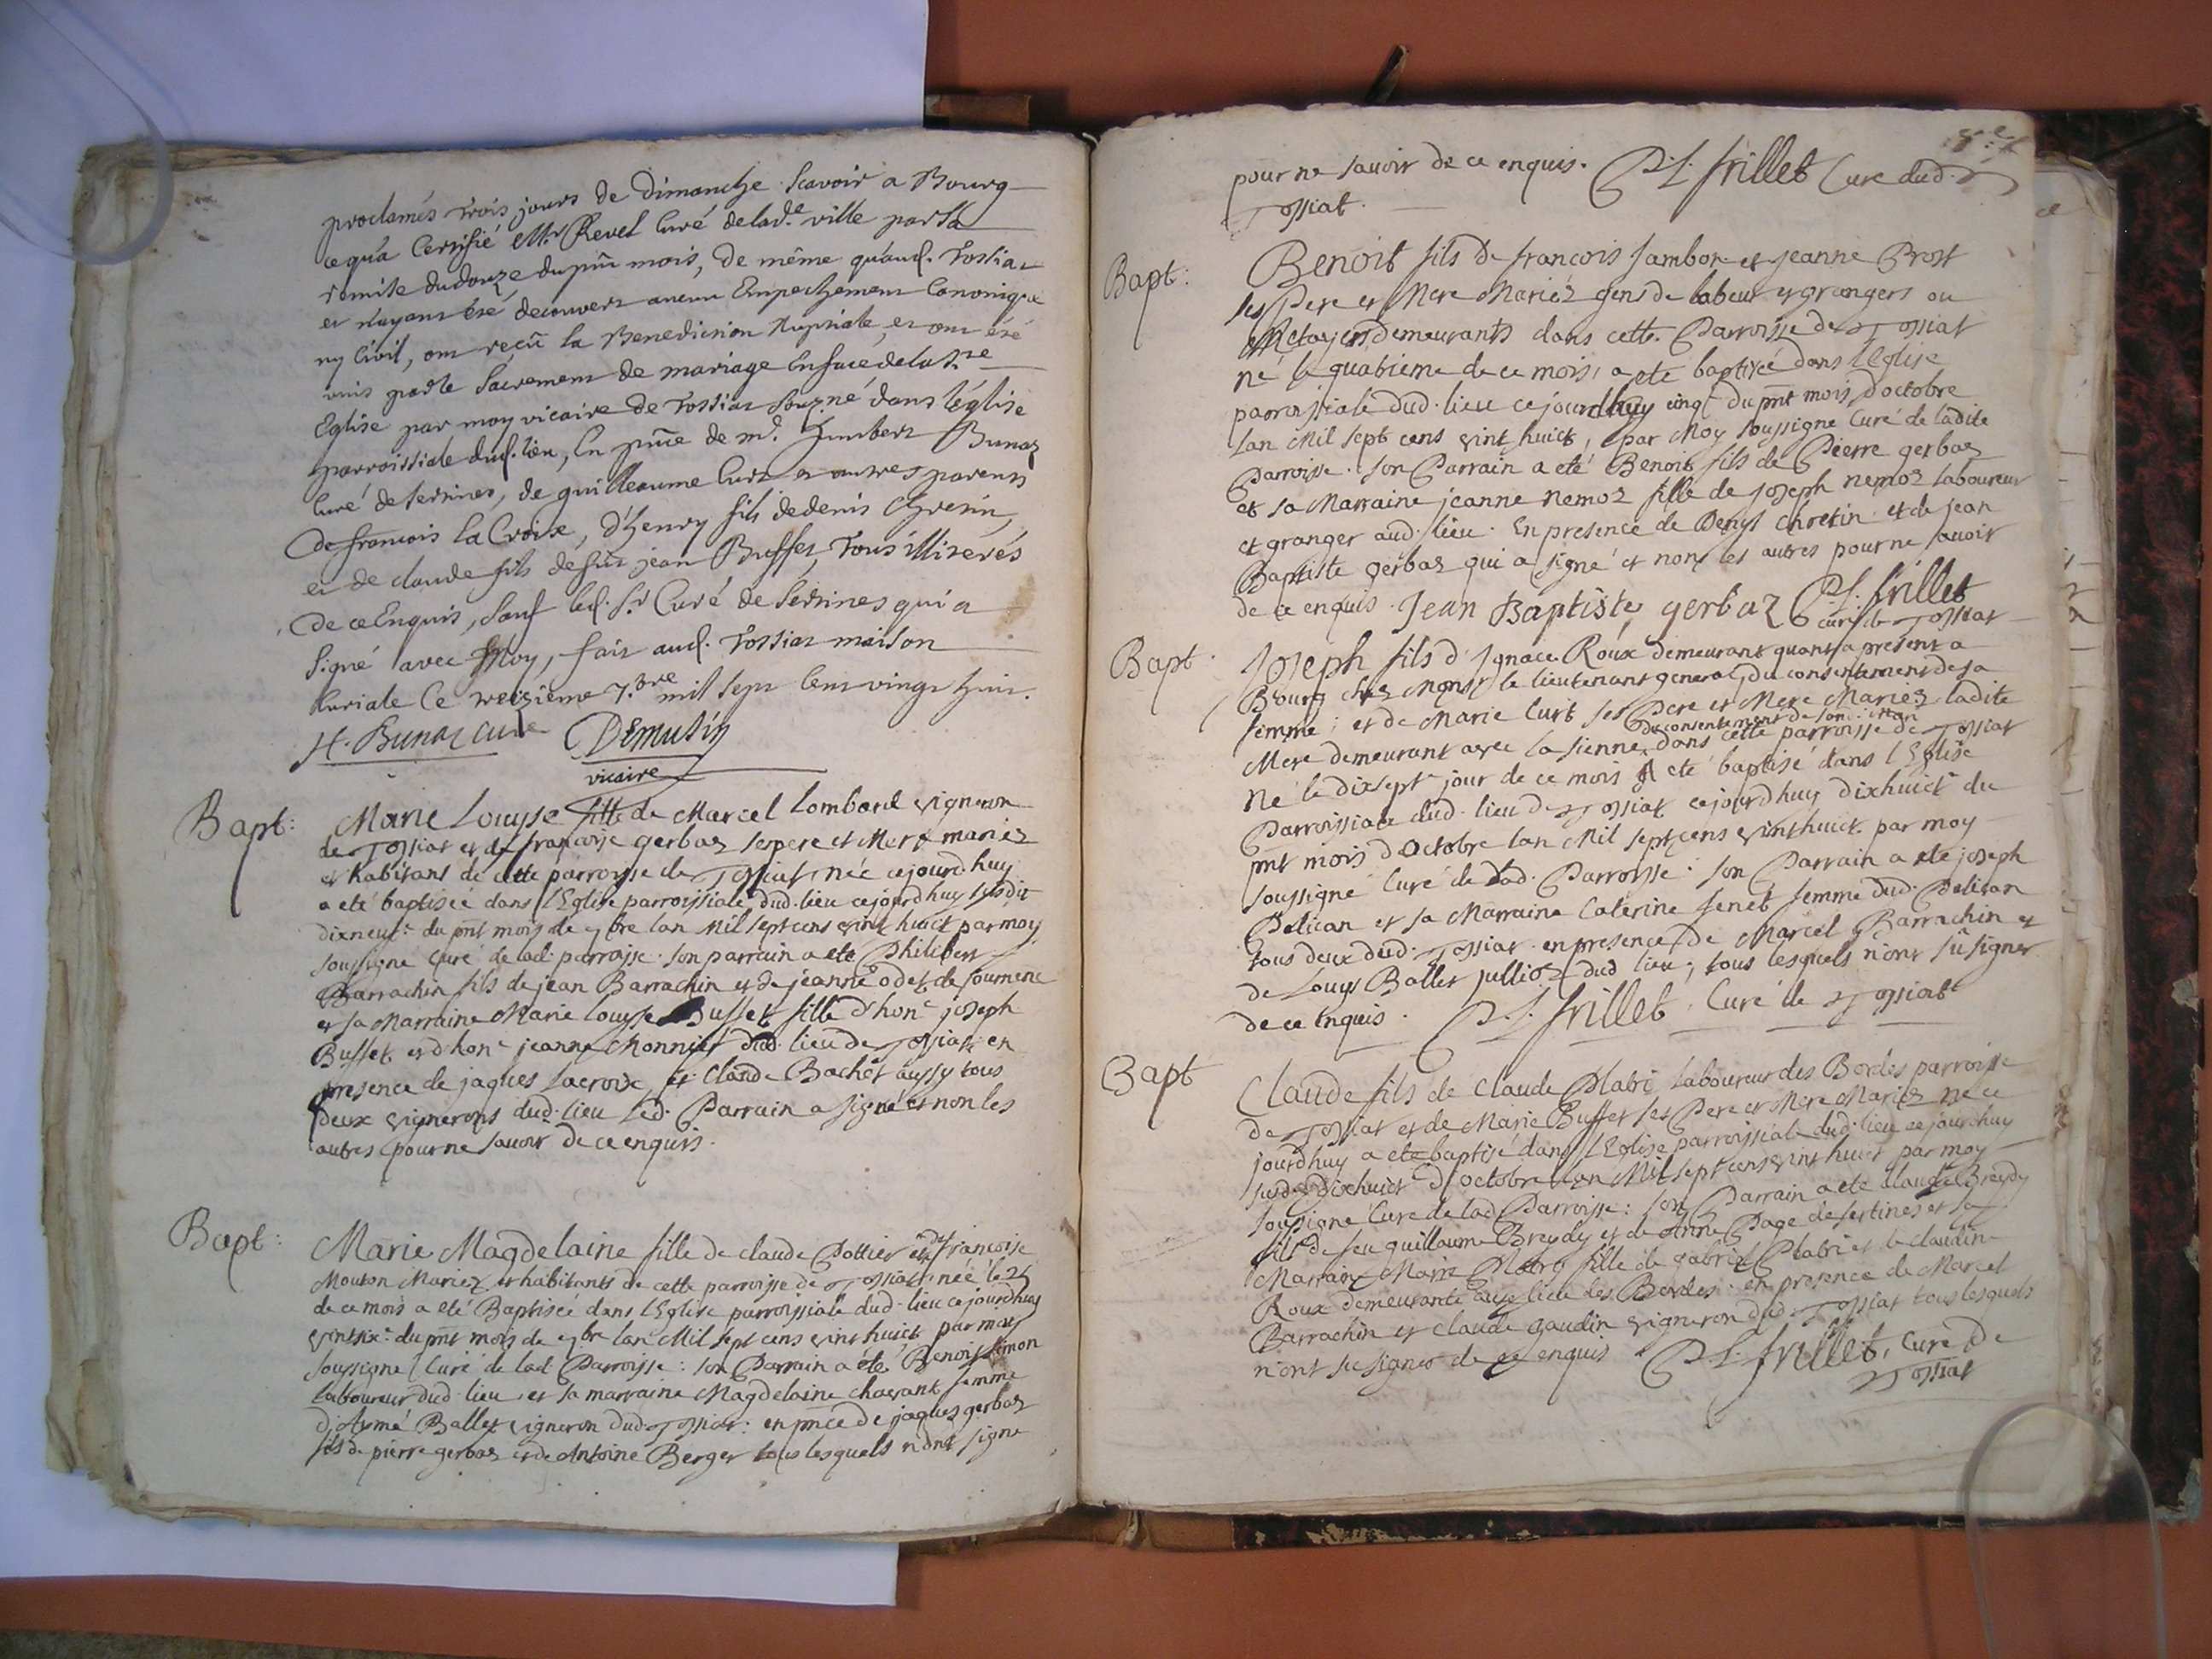 proclamés trois jours de Dimanche Scavoir a Bourg
ce qu'a Certifié Mr. Revel Curé de lad.e ville par sa
remise du douze du pnt mois, de même qu'aud. Tossiat
et n'ayant été découvert aucun Empechement Canonique
ny Civil, ont reçû la Benediction Nuptiale, et ont été
unis par le Sacrement de mariage En face de la Ste
Eglise par moy vicaire de Tossiat Souz.né dans l'église
parroissiale dud. lieu, En pnce de mr. Humbert Bunaz
Curé de sertines, de guilleaume Curt et autres parents
de francois La Croix, d'henry fils de denis Chretin,
et de claude fils de fût jean Buffet, Tous illiterés
De ce Enquis, Sauf led. Sr Curé de Sertines qui a
Signé avec Moy, fait aud. Tossiat maison
Curiale Ce treizieme 7.bre mil sept Cent vingt huit.
H. Bunaz curé DEmusin
vicaire
Bapt: Marie Louyse fille de Marcel Lombard vigneron
de Tossiat et de françoise gerbaz ses pere et Mere mariez
et habitans de cette parroisse de Tossiat née cejourdhuy
a eté baptisée dans l'Eglise parroissiale dud. lieu cejourdhuy susdit
dixneufe du pnt mois de 7bre lan Mil sept cens vint huict par moy
soussigné Curé de lad. parroisse. son parrain a eté Philibert
Barrachin fils de jean Barrachin et de jeanne odet de
et sa Marraine Marie Louyse Buffet fille d'hone joseph
Buffet et d'hone jeanne Monnier dud. lieu de Tossiat en
presence de jaques Lacroix et Claude Bachet aussy tous
deux vignerons dud. lieu Led. Parrain a signé et non les
autres pour ne savoir de ce enquis.
Bapt: Marie Magdelaine fille de claude Pottier et de françoise
Mouton Mariez et habitants de cette parroisse de Tossiat née le 25
de ce mois a eté Baptisée dans l'Eglise parroissiale dud. lieu cejourdhuy
vintsixe du pnt mois de 7bre lan Mil sept cens vint huict par moy
soussigné Curé de lad. Parroisse: son Parrain a eté Benoist Simon
laboureur dud. lieu et sa marraine Magdelaine chavant femme
d'Aymé Ballet vigneron dud. Tossiat: en pnce de jaques gerbaz
fils de pierre gerbaz et de Antoine Berger tous lesquels n'ont signé
pour ne savoir de ce enquis. P.L. frillet Curé dud.
Tossiat.
Bapt: Benoit fils de francois Jambon et jeanne Prost
ses Pere et Mere Mariéz gens de labeur et grangers ou
Metayers demeurants dans cette Parroisse de Tossiat
né le quatrieme de ce mois, a eté baptizé dans l'Eglise
parroissiale dud. lieu ce jourdhuy cinq du pnt mois d'octobre
lan Mil sept cens vint huict, par Moy soussigné Curé de ladite
Parroisse. son Parrain a eté Benoit fils de Pierre gerbaz
et sa Marraine jeanne nemoz fille de joseph nemoz laboureur
et granger aud. lieu. En presence de Denys chretin et de jean
Baptiste gerbaz qui a signé et non les autres pour ne savoir
de ce enquis. Jean Baptiste gerbaz P.L. frillet
curé de Tossiat
Bapt. Joseph fils d'Ignace Roux demeurant quant a present a
Bourg chez Monsr le lieutenant general, du consentement de sa
femme; et de Marie Curt ses Pere et Mere Mariez ladite
du consentement de son mari
Mere demeurant avec la sienne dans cette parroisse de Tossiat
né le dixsept jour de ce mois A eté baptisé dans l'Eglise
Parroissiale dud. lieu de Tossiat cejourdhuy dixhuict du
pnt mois d'octobre lan Mil sept cens vint huict. par moy
soussigné Curé de lad. Parroisse: son Parrain a eté joseph
Pelican et sa Marraine Caterine fenet femme dud. Pelican
tous deux dud. Tossiat en presence de Marcel Barrachin et
de Louys Ballet julliot dud lieu; tous lesquels n'ont sû signer
de ce enquis. P.L. frillet Curé de Tossiat
Bapt Claude fils de Claude Plabri Laboureur des Bordes parroisse
de Tossiat et de Marie Buffet ses Pere et Mere Mariez né ce
jourdhuy a eté baptisé dans l'Eglise parroissiale dud. lieu cejourdhuy
susd. dixhuict d'octobre lan Mil sept cens vint huict par moy
soussigné Curé de lad Parroisse: son Parrain a eté claude Breydy
fils de feu guillaume Breydy et de Anne Page de sertines et sa
Marraine Marie Plabry fille de gabriel Plabri et de claudine
Roux demeurante aux lieu des Bordes: en presence de Marcel
Barrachin et claude gaudin vigneron dud. Tossiat tous lesquels
n'ont sû signer de ce enquis P.L. frillet, Curé de
Tossiat